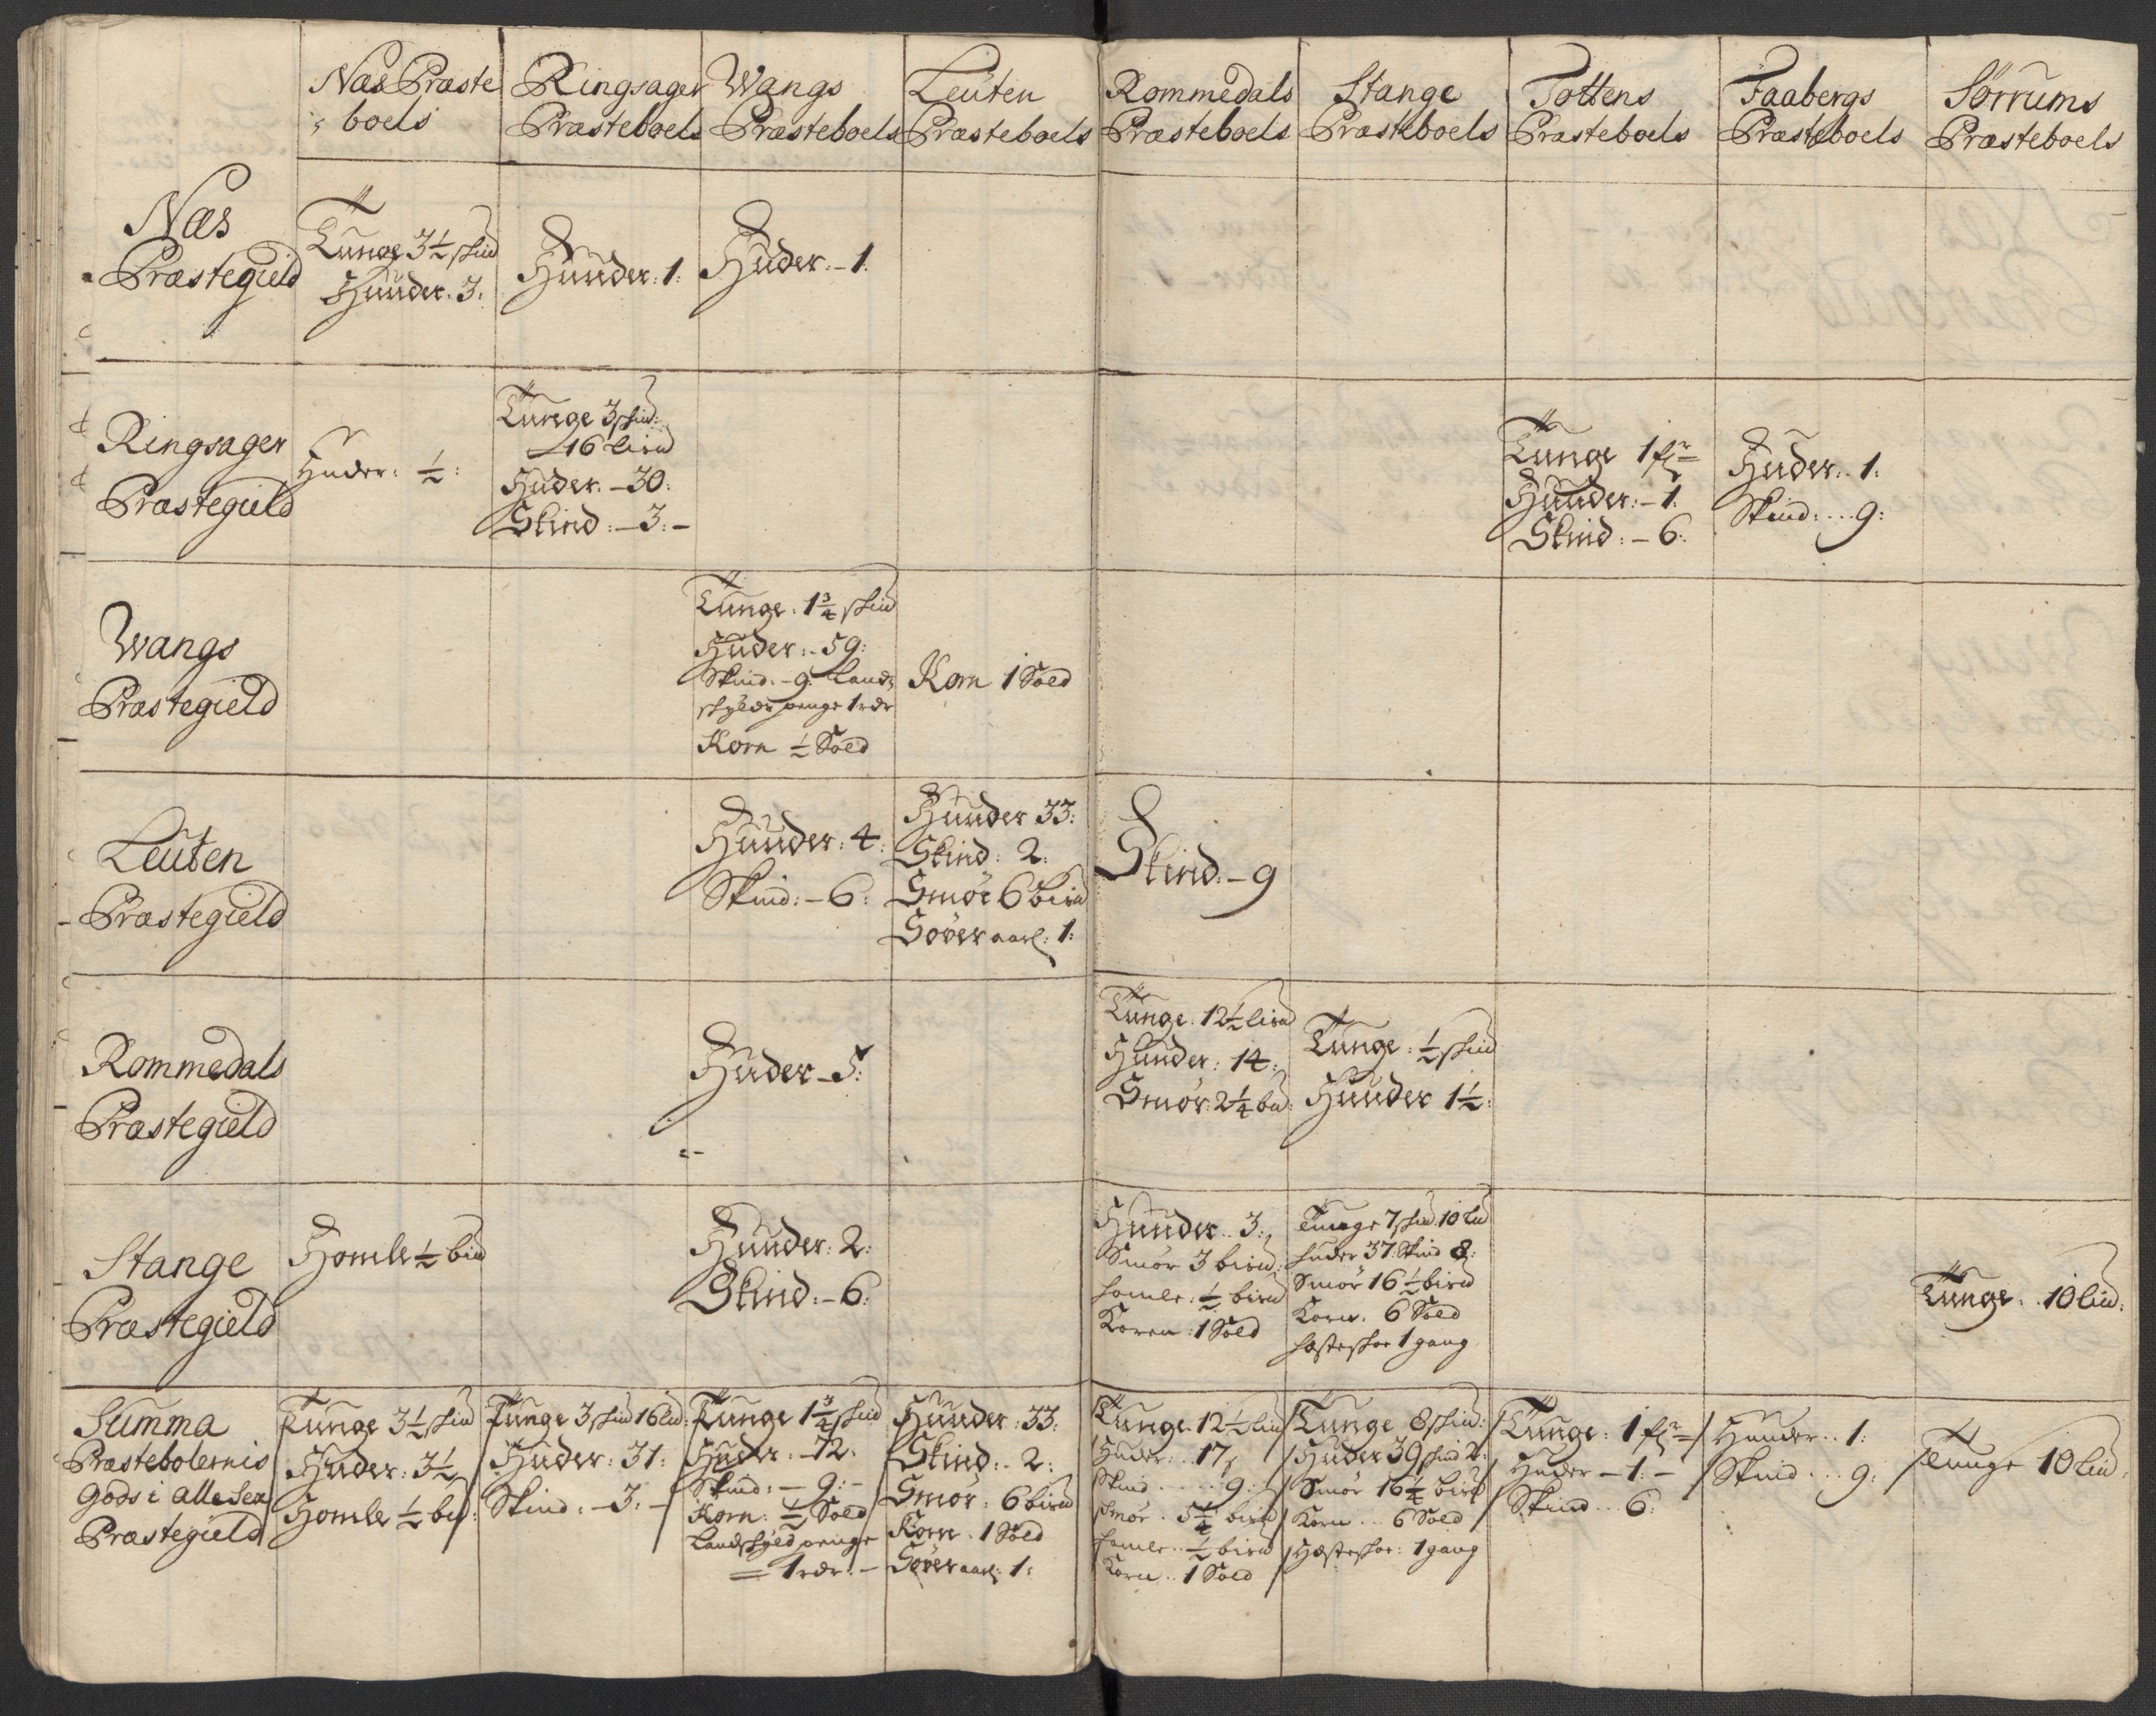 Næs Præste
boels
Ringsager
Præsteboels
Wangs
Præsteboels
Leuten
Præsteboels
Rommedals
Præsteboels
Stange
Præsteboels
Tottens
Præsteboels
Faabergs
Præsteboels
Sørrums
Præsteboels
Næs
Præstegield
Tunge 3½ skud
Huuder. 3:
Huuder: 1:
Huder: - 1:
Ringsager
Præstegield
Huder: ½:
Tunge 3 skud:
16 lisud
Huder. - 30:
Skind: - 3: -
Tunge 1
Huuder: - 1:
Skind: - 6:
Huder: 1:
Skind: .. 9:
Wangs
Præstegield
Tunge. 1¾ skud
Huder: - 59:
Skind: - 9: Land
skyldspenge 1 rdr
Korn ½ Sold
Korn 1 Sold
Leuten
Præstegield
Huuder: 4:
Skind: - 6:
Huuder 33:
Skind: 2:
Smør 6 bisud
Søver aarl: 1:
Skind: - 9
Rommedals
Præstegield
Huder - 5:
Tunge. 12½ lisud
Huuder: 14:
Smør: 2¼ bud:
Tunge: ½ skud
Huuder 1½:
Stange
Præstegield
Homle ½ bud
Huuder: 2:
Skind: - 6:
Huuder.. 3:
Smør 3 bisud:
homle: ½ bisud
Koren: 1 Sold
Tunge 7 skud. 10 lud
huder 37: Skind 8:
Smør 16½ bisud
Korn. 6 Sold
hæsteskoe 1 gang
Tunge. . 10 lud:
Summa
Præstebolernis
Gods i alle Sex
Præstegield
Tunge 3½ skud
Huder: 3½
Homle ½ bud:
Tunge 3 skud 16 lud:
Huder: 31:
Skind: - 3: -
Tunge 1¾ skud
Huder: - 72:
Skind: - 9: -
Korn: ½ Sold
Landskyld penge
= 1 rdr: -
Huuder: 33:
Skind: - 2:
Smør: 6 bisud
Korn. 1 Sold
Søver aarl: 1:
Tunge. 12½ lud
Huder: . 17,
Skind ..... 9:
Smør. 5¼ bisud
homle.. ½ bisud
Korn.. 1 Sold
Tunge 8 skud:
Huder 39 skind 2:
Smør 16¼ bisud
Korn ... 6 Sold
Hæsteskoe: 1 gang
Tunge: 1
Huder - 1: -
Skind ... 6:
Huuder.. 1:
Skind ... 9:
Tunge 10 lud: